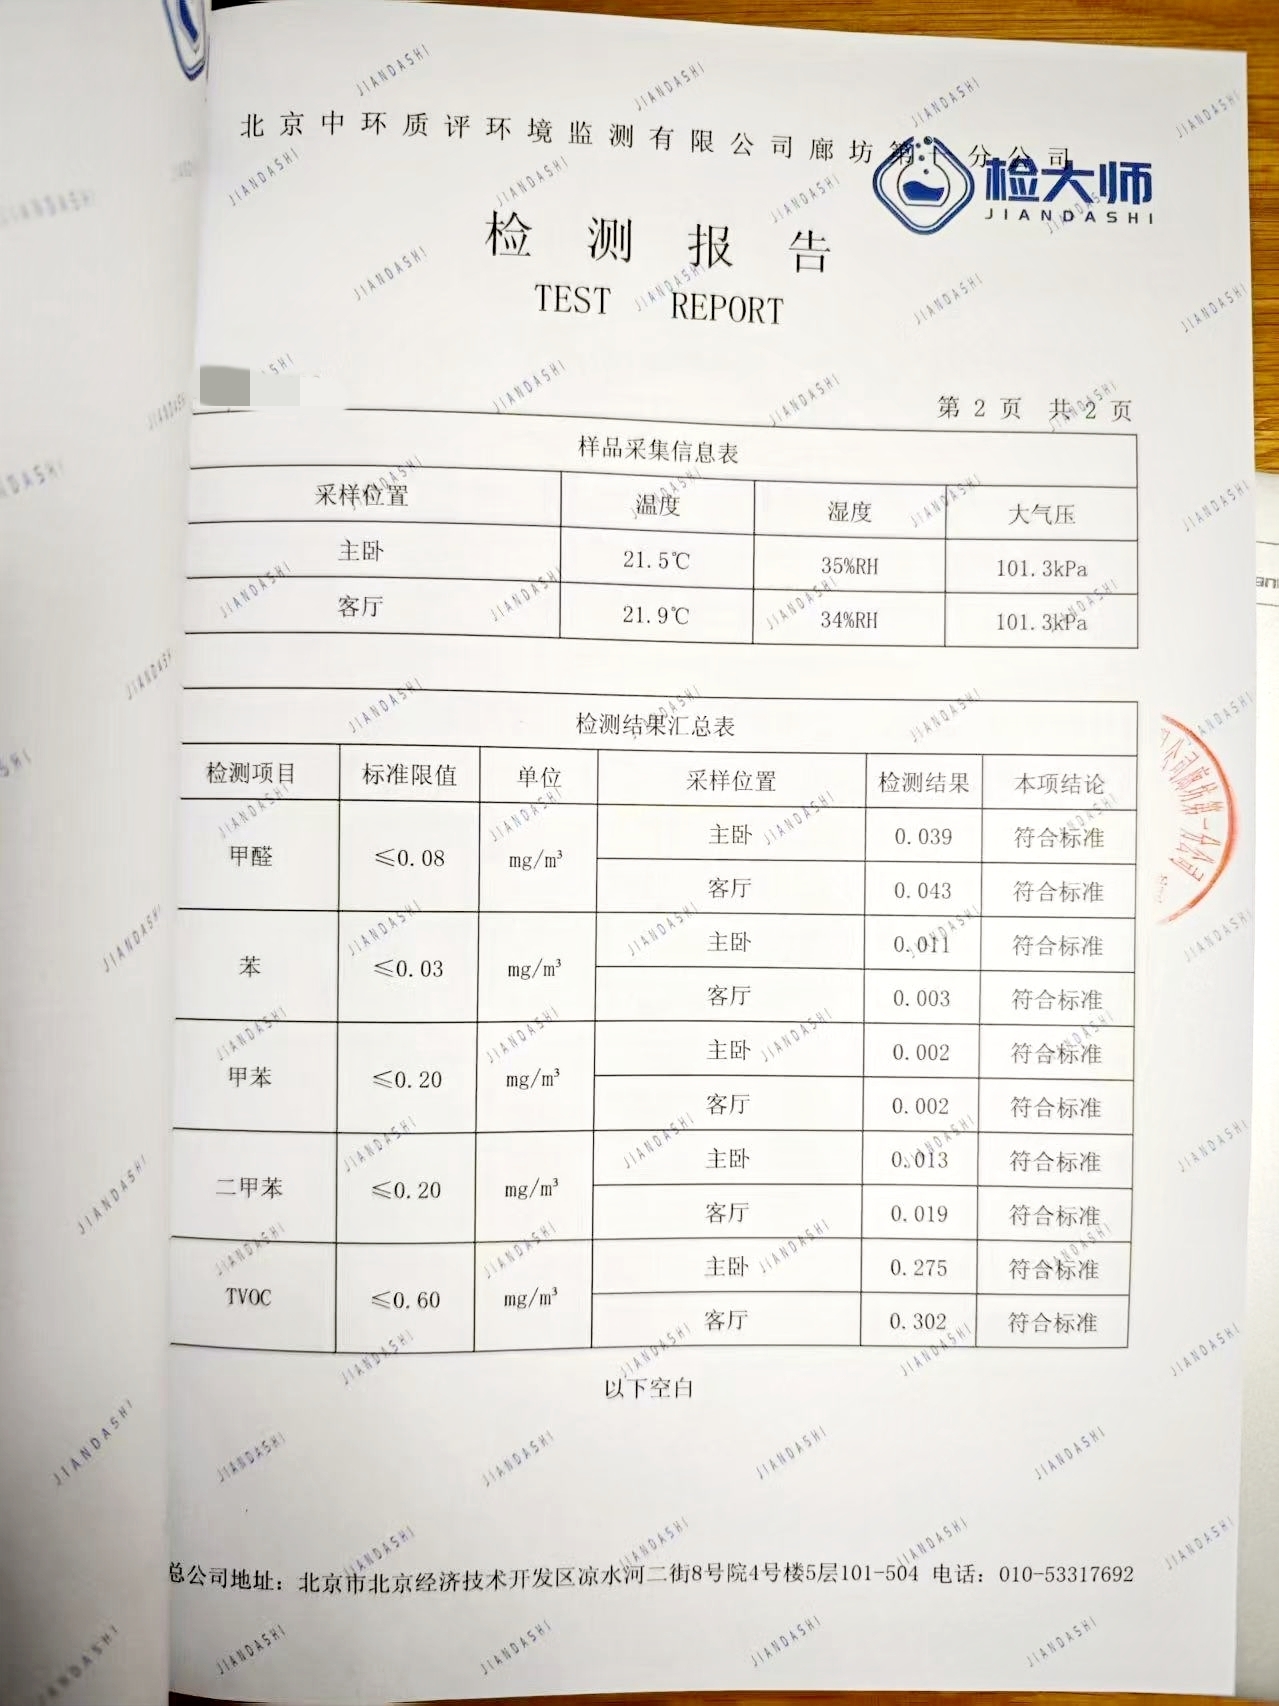 北京中环质评环境监测有限公司廊坊第一分公司
检大师
JIANDASHI
检 测 报 告
TEST REPORT
第 2 页 共 2 页
样品采集信息表
采样位置 温度 湿度 大气压
主卧 21.5℃ 35%RH 101.3kPa
客厅 21.9℃ 34%RH 101.3kPa
检测结果汇总表
检测项目 标准限值 单位 采样位置 检测结果 本项结论
甲醛 ≤0.08 mg/m³ 主卧 0.039 符合标准
客厅 0.043 符合标准
苯 ≤0.03 mg/m³ 主卧 0.011 符合标准
客厅 0.003 符合标准
甲苯 ≤0.20 mg/m³ 主卧 0.002 符合标准
客厅 0.002 符合标准
二甲苯 ≤0.20 mg/m³ 主卧 0.013 符合标准
客厅 0.019 符合标准
TVOC ≤0.60 mg/m³ 主卧 0.275 符合标准
客厅 0.302 符合标准
以下空白
总公司地址：北京市北京经济技术开发区凉水河二街8号院4号楼5层101-504 电话：010-53317692
公司廊坊第一分公司